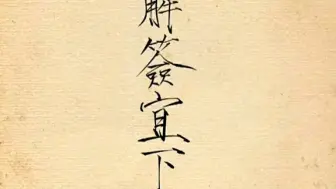 解簽宜下